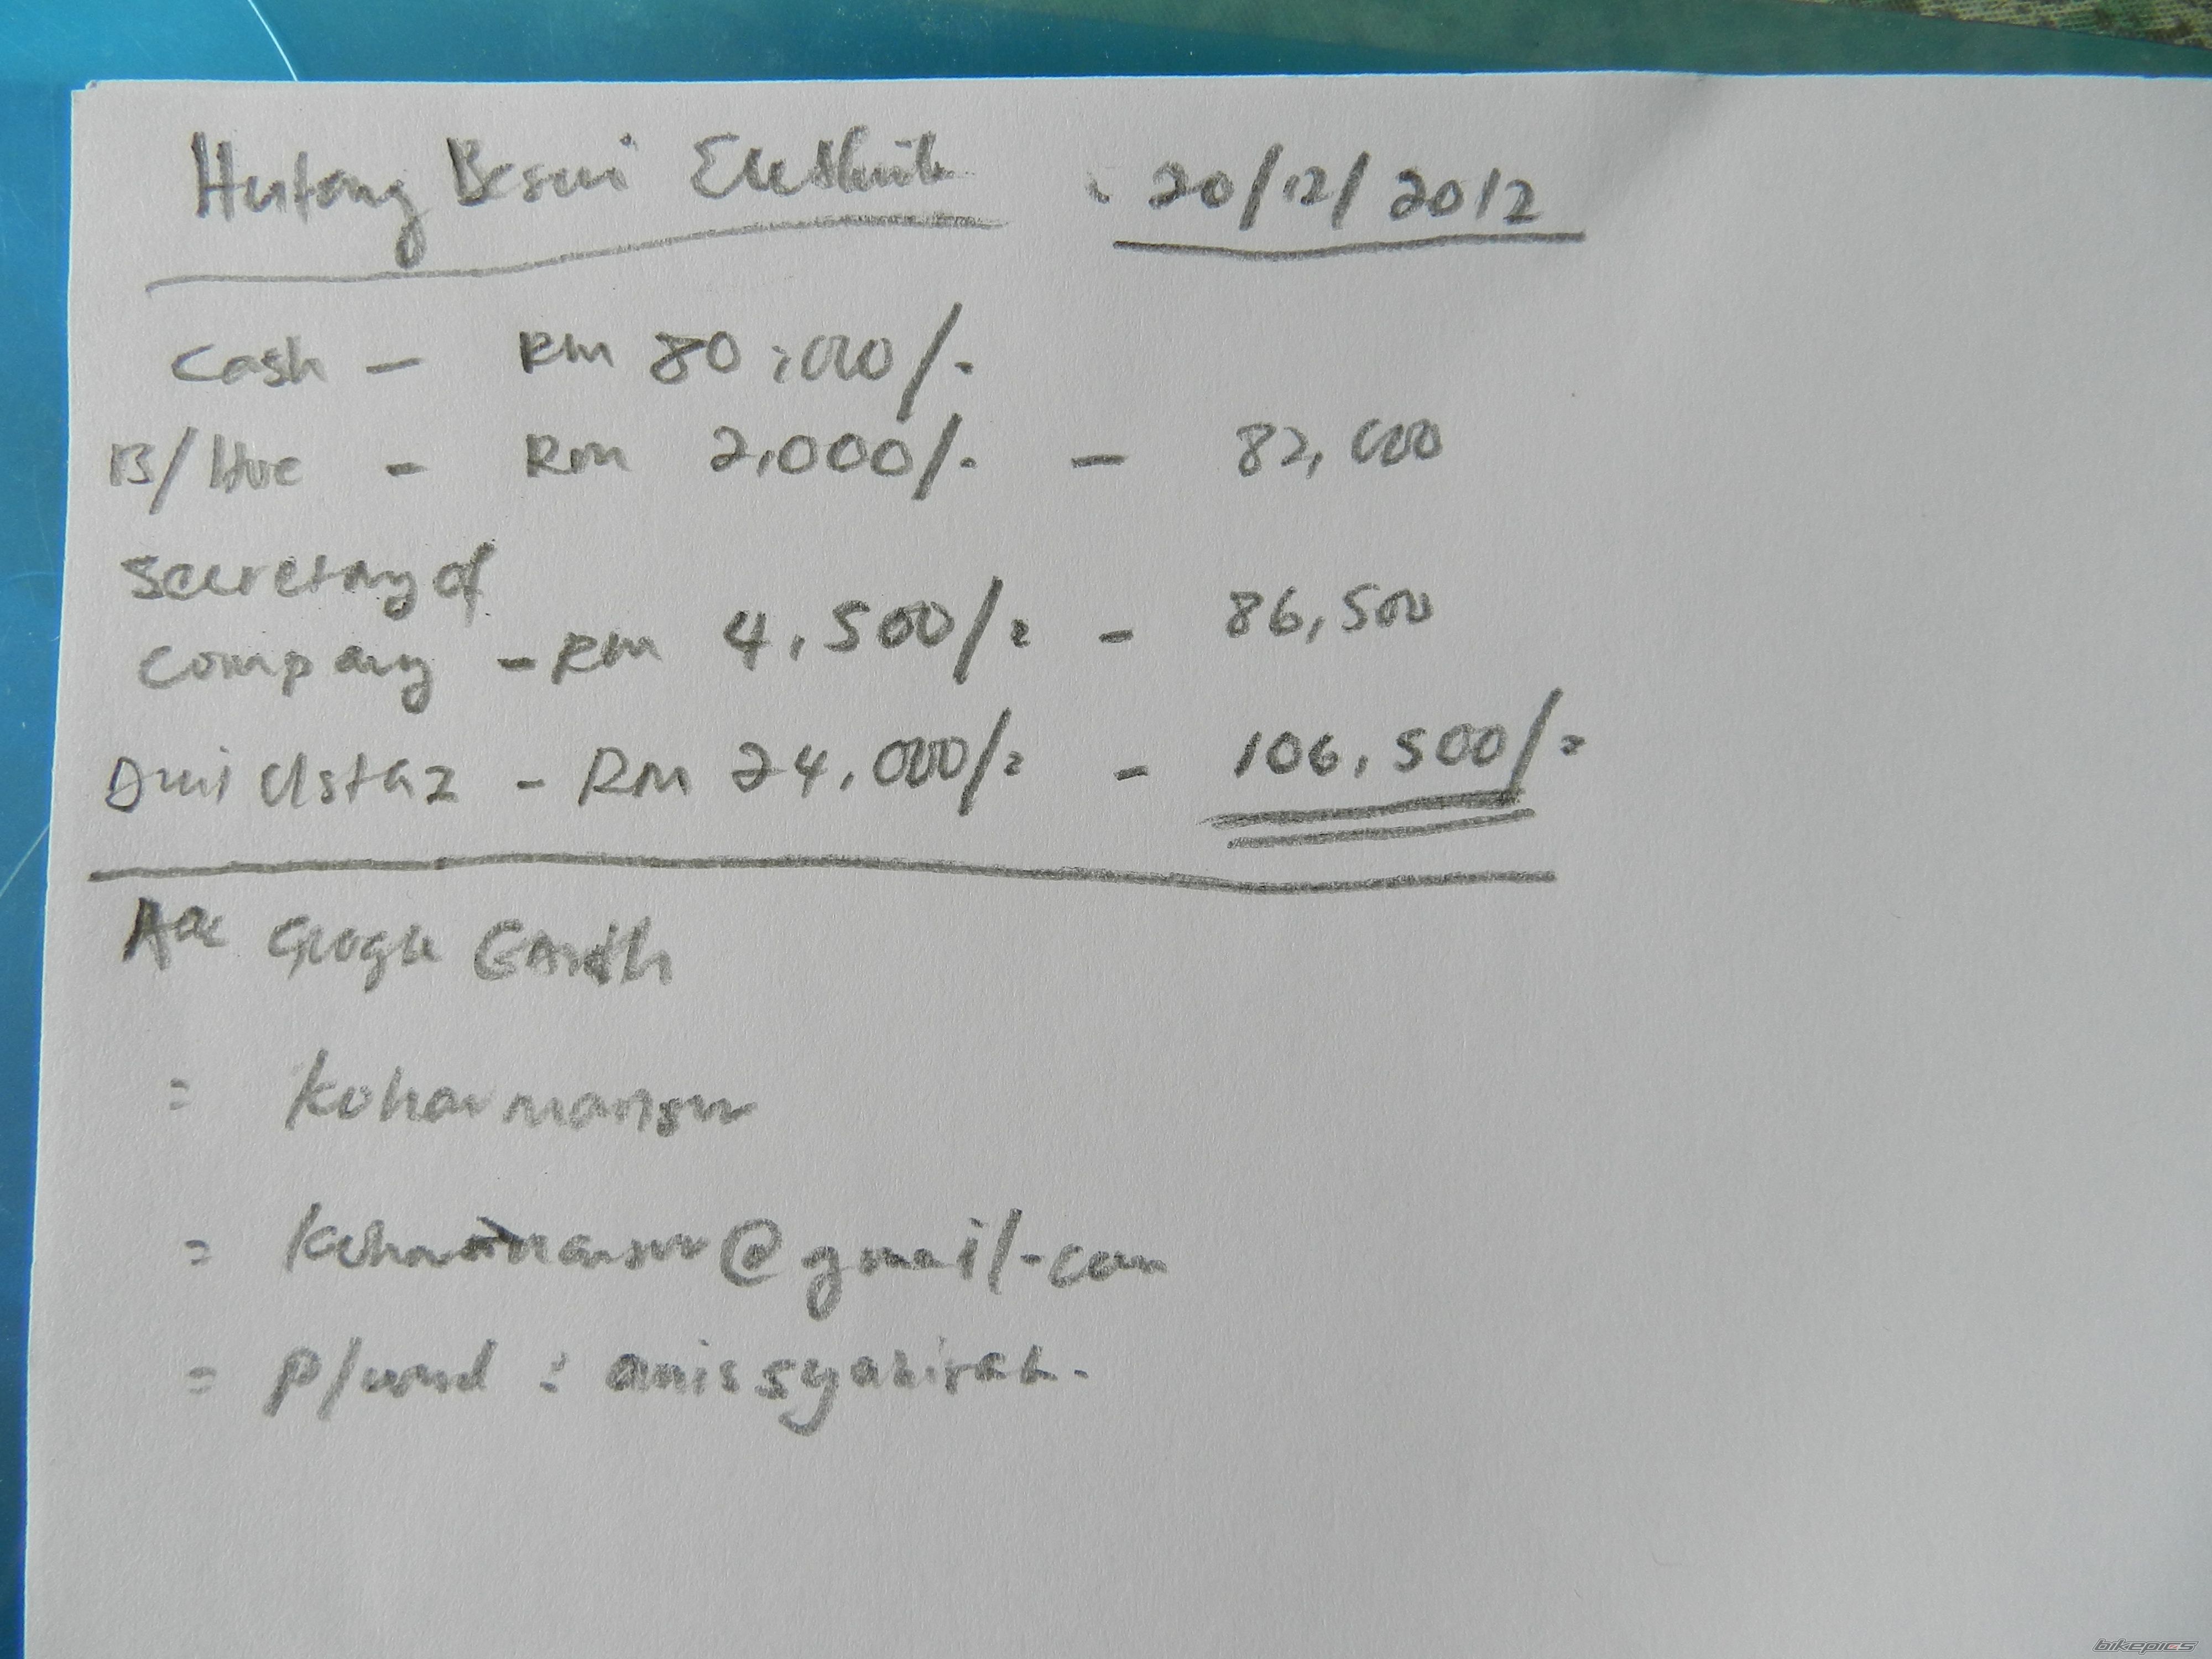 Hutang Besi Elektrik : 20/12/2012
Cash - RM 80,000/-
B/Hoc - RM 2,000/- - 82,000
Secretary of
Company - RM 4,500/= - 86,500
Duit Ustaz - RM 24,000/= - 106,500/=
Acc Google Earth
= koharmansur
= koharmansur@gmail.com
= p/word : anissyakirah.
bikepics